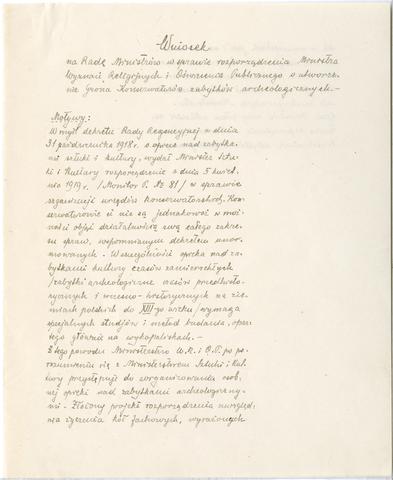 Wniosek
na Radę Ministrów w sprawie rozporządzenia Ministra
Wyznań Religijnych i Oświecenia Publicznego o utworze-
nie Grona Konserwatorów zabytków archeologicznych.—
Motywy:
W myśl dekretu Rady Regencyjnej z dnia
31 października 1918 r. o opiece nad zabytka-
mi sztuki i kultury, wydał Minister Sztu-
ki i Kultury rozporządzenie z dnia 5 kwiet-
nia 1919 r. /Monitor P. № 81/ w sprawie
organizacji urzędów konserwatorskich. Kon-
serwatorowie ci nie są jednakowoż w moż-
ności objąć działalnością swą całego zakre-
su spraw, wspomnianym dekretem unor-
mowanych. W szczególności opieka nad za-
bytkami kultury czasów zamierzchłych
/zabytki archeologiczne czasów przedhisto-
rycznych i wczesno-historycznych na zie-
miach polskich do XIII-go wieku/ wymaga
specjalnych studjów i metod badania, opar-
tego głównie na wykopaliskach.—
Z tego powodu Ministerstwo W.R. i O.P. po po-
rozumieniu się z Ministerstwem Sztuki i Kul-
tury przystępuje do zorganizowania osob-
nej opieki nad zabytkami archeologiczny-
mi.- Złożony projekt rozporządzenia uwzględ-
nia życzenia kół fachowych, wyrażonych